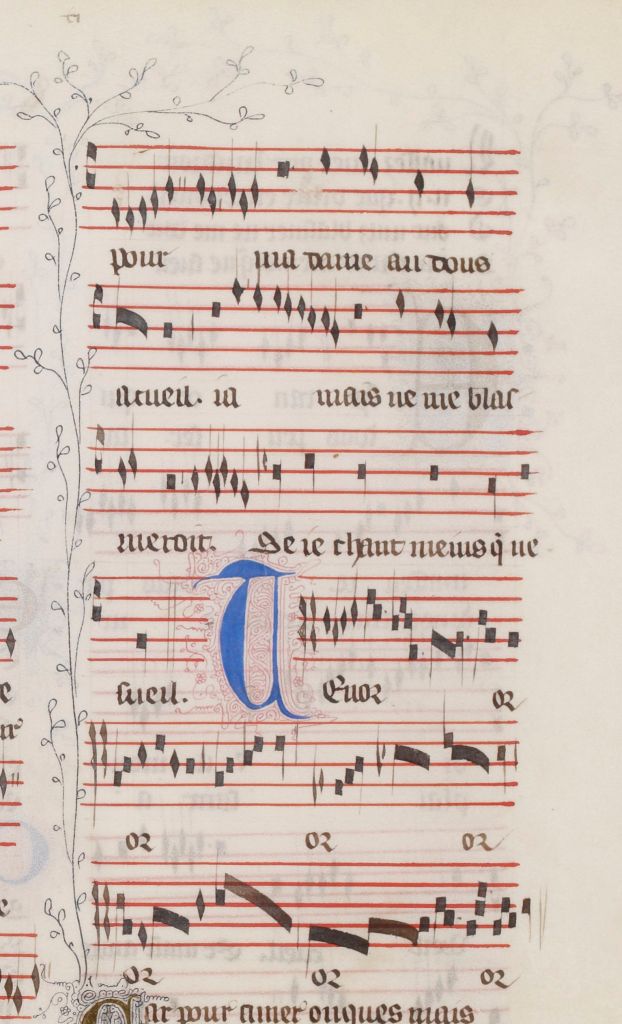 pour ma dame au dous
acueil. ia mais ne me blas
meroit. Se ie chant meins q̇ ne
sueil.
Tenor or
or or or
or or or
Car pour amer onques mais